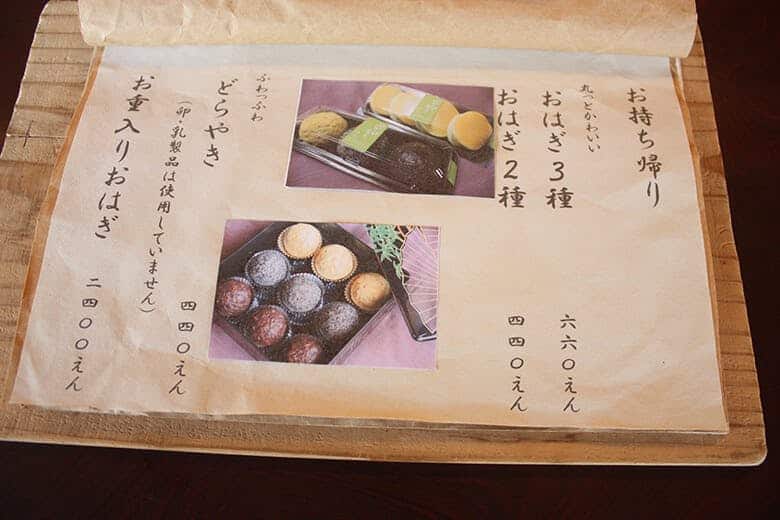 お持ち帰り
丸っとかわいい
おはぎ3種
六六〇えん
おはぎ2種
四四〇えん
ふわっふわ
どらやき
(卵・乳製品は使用していません)
四四〇えん
お重入りおはぎ
二四〇〇えん